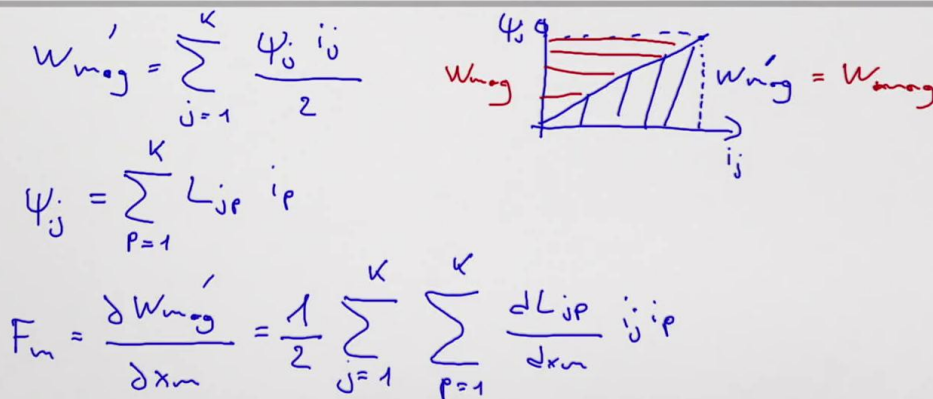 W'mag = Σ_{j=1}^{K} ψj ij / 2
ψj
Wmag
W'mag = Wmag
ij
ψj = Σ_{p=1}^{K} Ljp ip
Fm = ∂W'mag / ∂xm = 1/2 Σ_{j=1}^{K} Σ_{p=1}^{K} dLjp / dxm ij ip